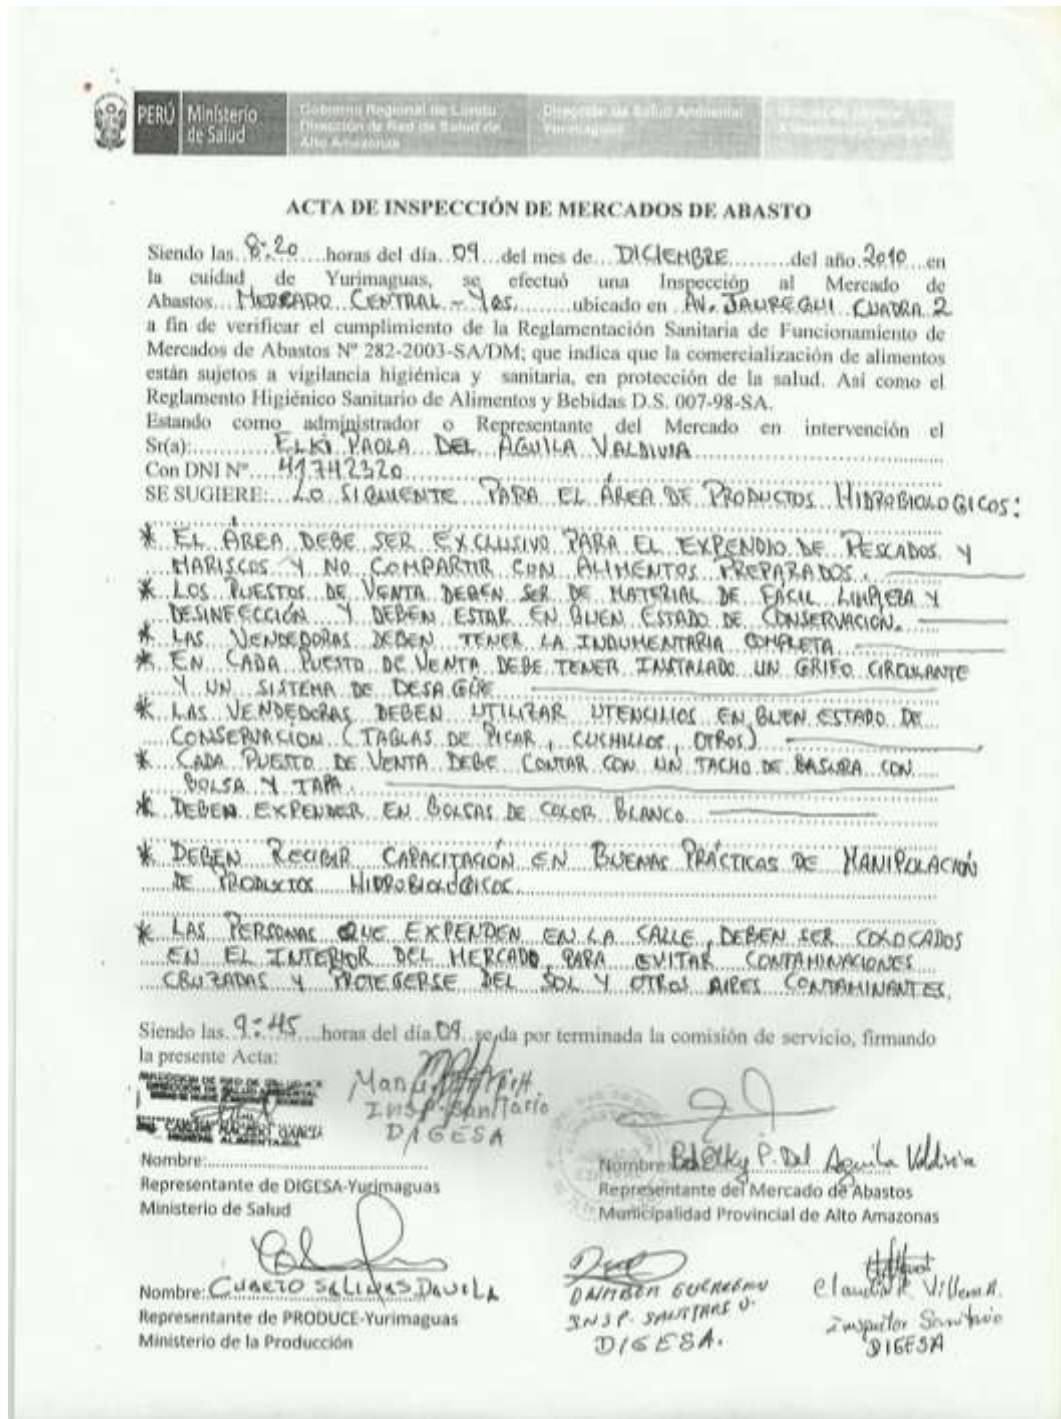 PERÚ Ministerio de Salud
Gobierno Regional de Loreto
Dirección de Red de Salud de
Alto Amazonas
Dirección de Salud Ambiental
Yurimaguas
ACTA DE INSPECCIÓN DE MERCADOS DE ABASTO
Siendo las 8:20 horas del día 09 del mes de DICIEMBRE del año 2010 en
la cuidad de Yurimaguas, se efectuó una Inspección al Mercado de
Abastos MERCADO CENTRAL - Ygs. ubicado en AV. JAUREGUI CUADRA 2
a fin de verificar el cumplimiento de la Reglamentación Sanitaria de Funcionamiento de
Mercados de Abastos Nº 282-2003-SA/DM; que indica que la comercialización de alimentos
están sujetos a vigilancia higiénica y sanitaria, en protección de la salud. Así como el
Reglamento Higiénico Sanitario de Alimentos y Bebidas D.S. 007-98-SA.
Estando como administrador o Representante del Mercado en intervención el
Sr(a): ELKI PAOLA DEL AGUILA VALDIVIA
Con DNI Nº 41742320
SE SUGIERE: LO SIGUIENTE PARA EL ÁREA DE PRODUCTOS HIDROBIOLOGICOS:
* EL ÁREA DEBE SER EXCLUSIVO PARA EL EXPENDIO DE PESCADOS Y
MARISCOS Y NO COMPARTIR CON ALIMENTOS PREPARADOS.
* LOS PUESTOS DE VENTA DEBEN SER DE MATERIAL DE FÁCIL LIMPIEZA Y
DESINFECCIÓN Y DEBEN ESTAR EN BUEN ESTADO DE CONSERVACION.
* LAS VENDEDORAS DEBEN TENER LA INDUMENTARIA COMPLETA
* EN CADA PUESTO DE VENTA DEBE TENER INSTALADO UN GRIFO CIRCULANTE
Y UN SISTEMA DE DESAGÜE
* LAS VENDEDORAS DEBEN UTILIZAR UTENCILIOS EN BUEN ESTADO DE
CONSERVACION (TABLAS DE PICAR, CUCHILLOS, OTROS)
* CADA PUESTO DE VENTA DEBE CONTAR CON UN TACHO DE BASURA CON
BOLSA Y TAPA.
* DEBEN EXPENDER EN BOLSAS DE COLOR BLANCO
* DEBEN RECIBIR CAPACITACIÓN EN BUENAS PRÁCTICAS DE MANIPULACIÓN
DE PRODUCTOS HIDROBIOLÓGICOS.
* LAS PERSONAS QUE EXPENDEN EN LA CALLE, DEBEN SER COLOCADOS
EN EL INTERIOR DEL MERCADO, PARA EVITAR CONTAMINACIONES
CRUZADAS Y PROTEGERSE DEL SOL Y OTROS AIRES CONTAMINANTES.
Siendo las 9:45 horas del día 09 se da por terminada la comisión de servicio, firmando
la presente Acta:
Insp. Sanitario
DIGESA
HIGIENE ALIMENTARIA
Nombre:
Representante de DIGESA-Yurimaguas
Ministerio de Salud
Nombre: P. Del Aguila Valdivia
Representante del Mercado de Abastos
Municipalidad Provincial de Alto Amazonas
Nombre: SALINAS DAVILA
Representante de PRODUCE-Yurimaguas
Ministerio de la Producción
INSP. SANITARIO
DIGESA.
Villena R.
Inspector Sanitario
DIGESA